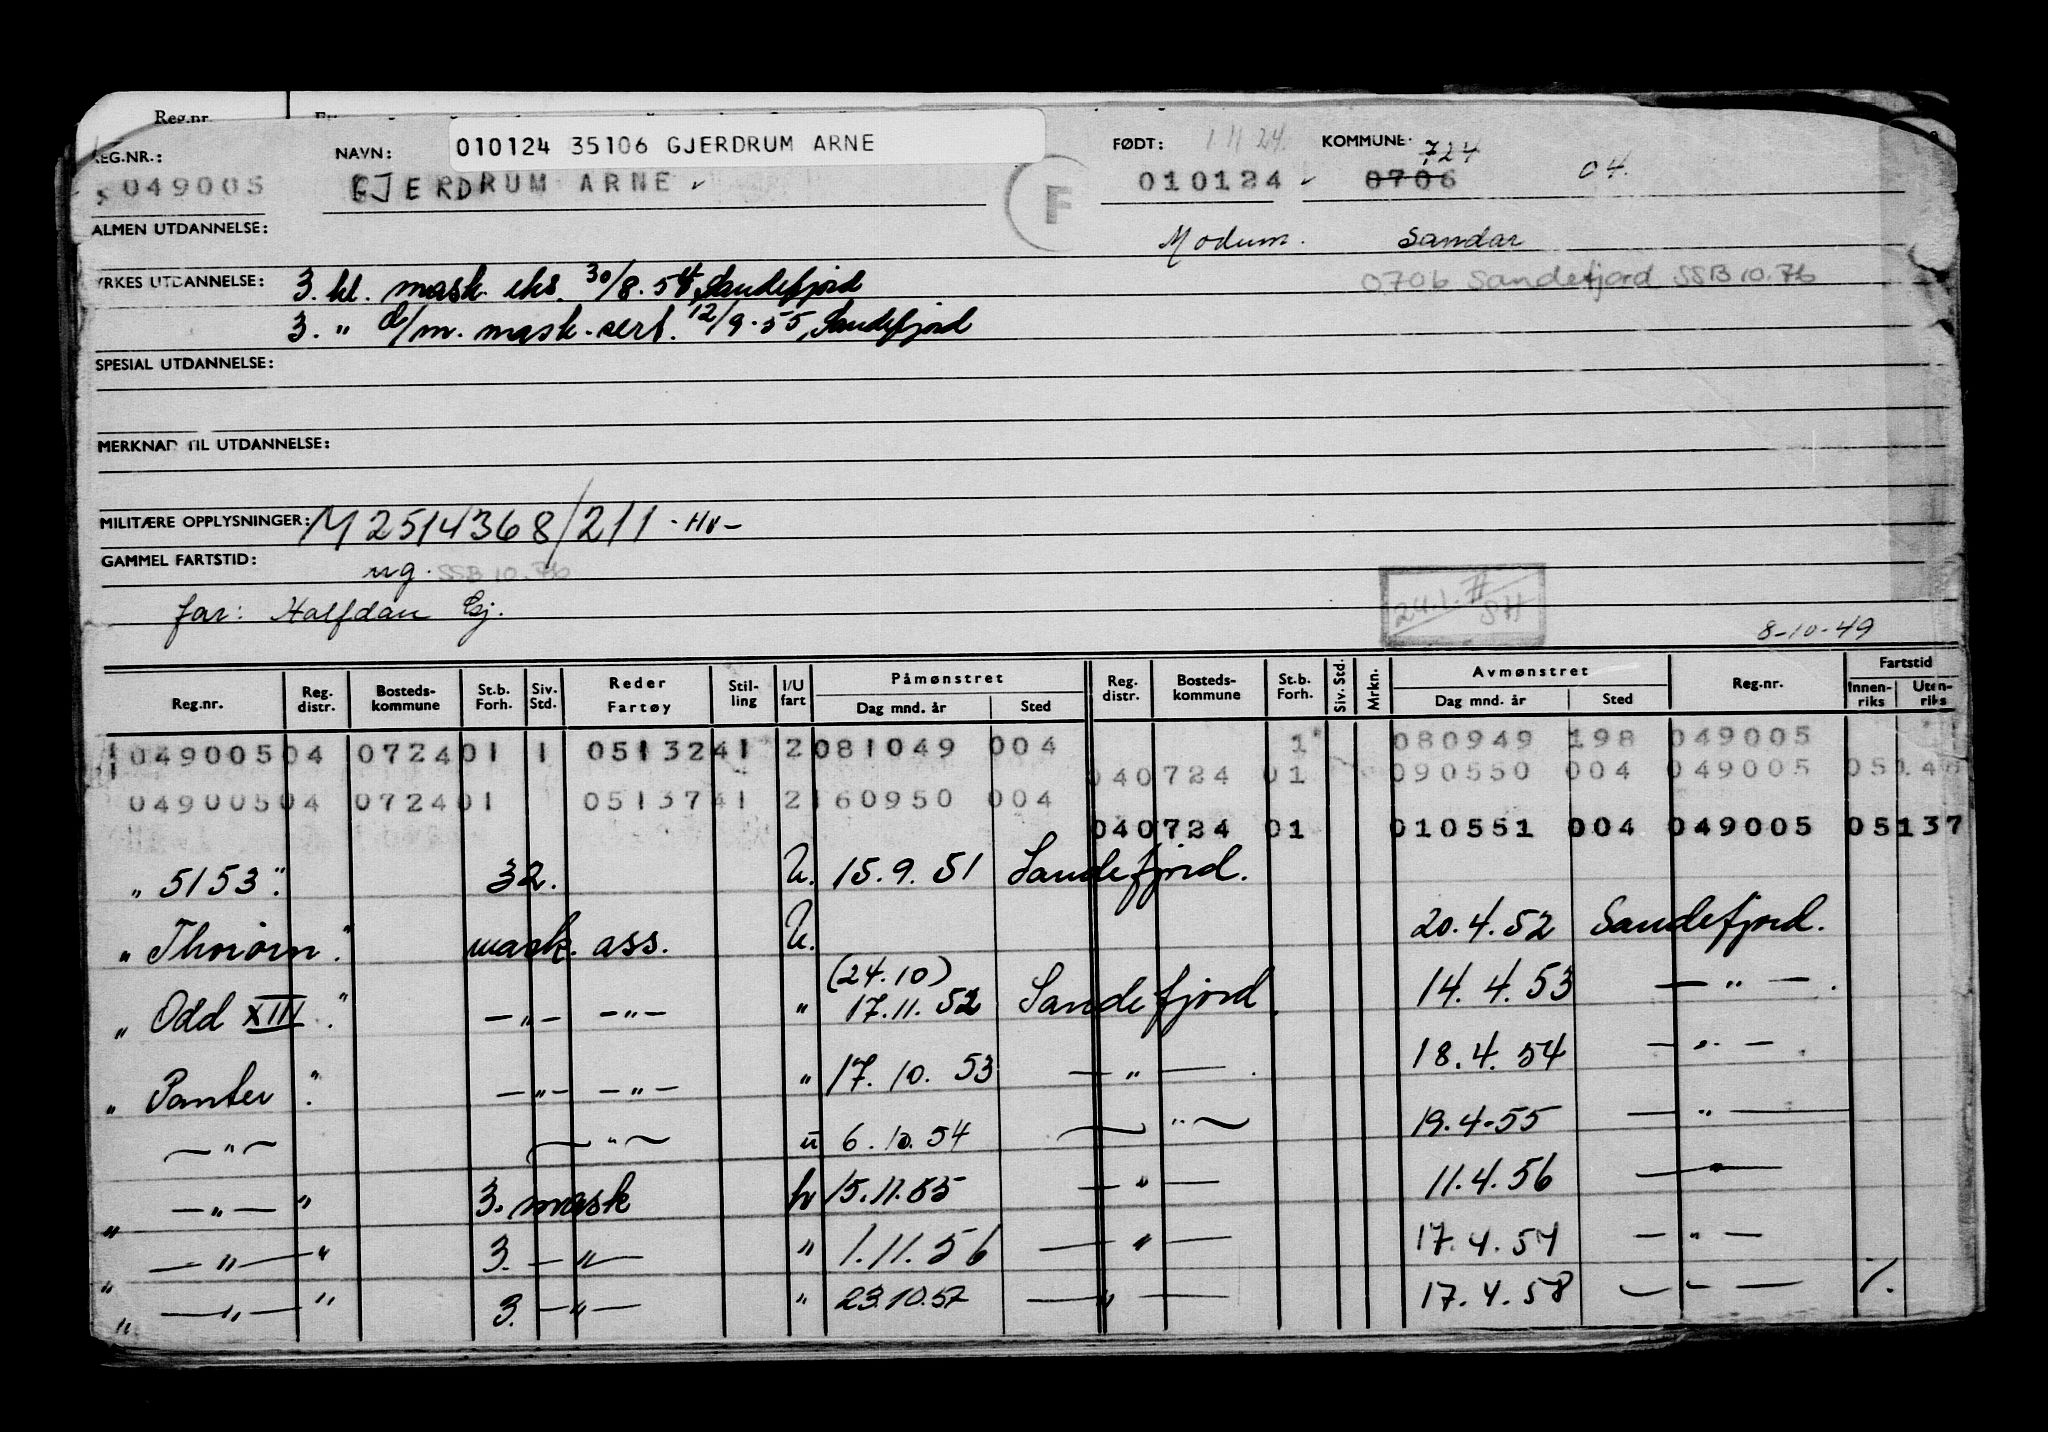 Reg.nr.
010124 35106 GJERDRUM ARNE
EG.NR.: NAVN: FØDT: 1 11 24. KOMMUNE: 724
049005 GJERDRUM ARNE F 010124 0706 04.
ALMEN UTDANNELSE: Modum. Sandar
YRKES UTDANNELSE: 3. kl. mask. eks. 30/8.54, Sandefjord 0706 Sandefjord SSB 10.76
3. " d/m. mask.-sert. 12/9-55, Sandefjord
SPESIAL UTDANNELSE:
MERKNAD TIL UTDANNELSE:
MILITÆRE OPPLYSNINGER: M 2514368/211 -HV-
GAMMEL FARTSTID: ug. SSB 10.76
far: Halfdan Gj. 24.1. SH
8-10-49
Reg.nr. Reg. distr. Bosteds- kommune St.b. Forh. Siv. Std. Reder Fartøy Stil- ling I/U fart Påmønstret Dag mnd. år Sted Reg. distr. Bosteds- kommune St.b. Forh. Siv. Std. Mrkn. Avmønstret Dag mnd. år Sted Reg.nr. Fartstid Innen- riks Uten- riks
049005 04 0724 01 1 0513241 2 081049 004 1 080949 198 049005
040724 01 090550 004 049005
049005 04 0724 01 0513741 2 160950 004
040724 01 010551 004 049005 05137
" 5153". 32. U. 15.9.51 Sandefjord.
" Thoiorn". mask. ass. U. 20.4.52 Sandefjord.
(24.10)
" Odd XIII". —"— —"— " 17.11.52 Sandefjord. 14.4.53 —"—.
" Panter". —"— —"— " 17.10.53 —"—. 18.4.54 —"—
—"— —"— u 6.10.54 —"— 19.4-55 —"—
" —"— " 3. mask h 15.11.55 —"— 11.4.56 —"—
" —"— " 3. —"— " 1.11.56 —"— 17.4.57 —"—
" —"— " 3. —"— " 23.10.57 —"— 17.4.58 —"— %.